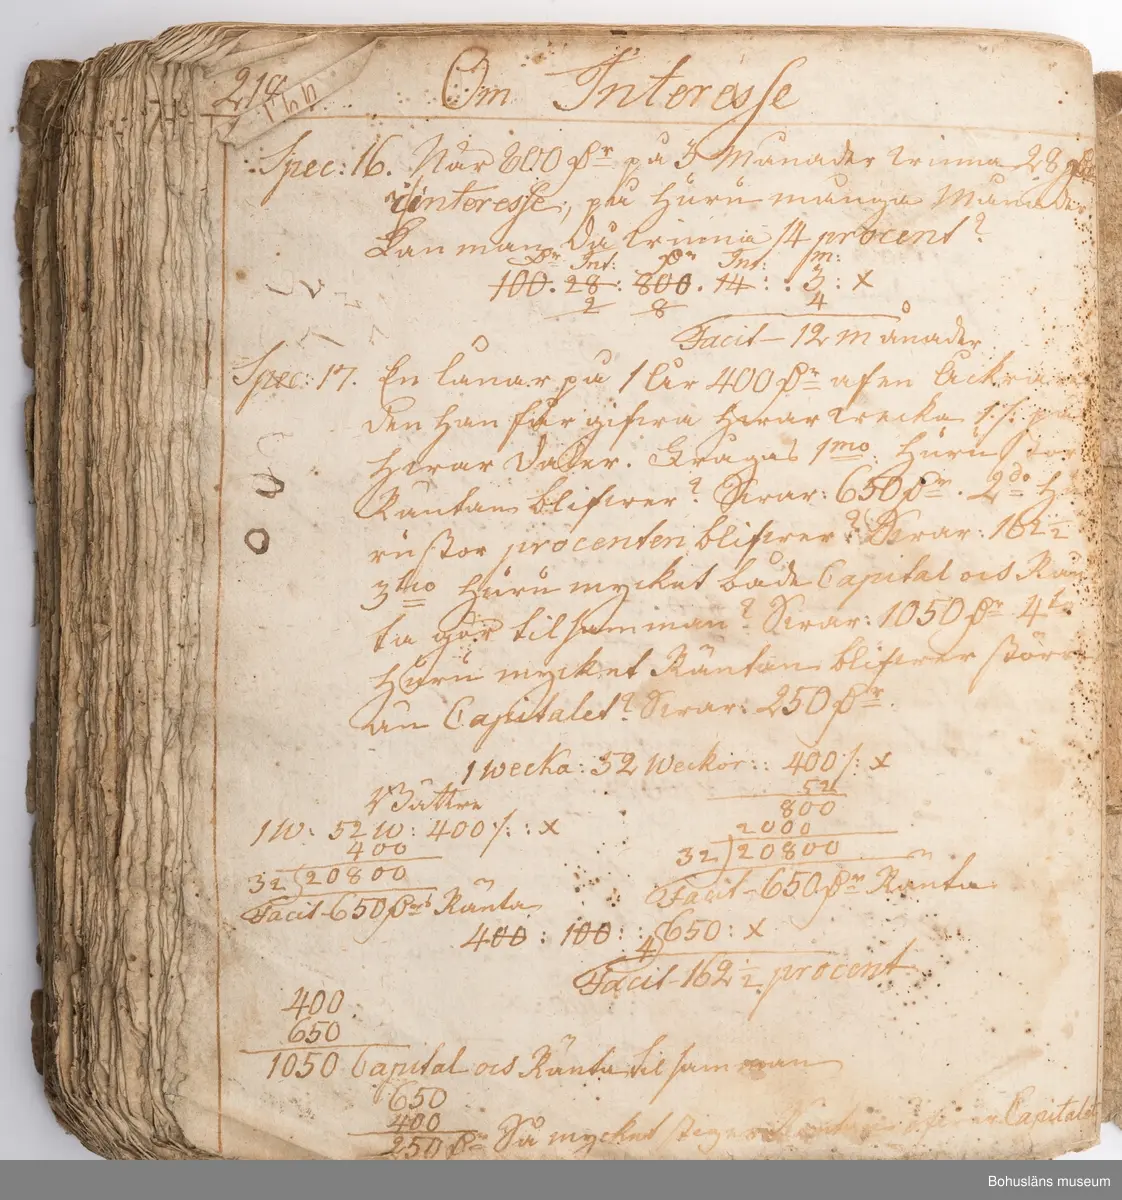 214
Om Interesse
Spec: 16. När 800 Dr på 3 Månader winna 28
interesse, på huru många Månader
kan man då winna 14 procent?
Dr Int: Dr Int: m:
100. 28: 800. 14: . 3: x
2 8 4
Facit - 12 Månader
Spec: 17. En lånar på 1 åhr 400 Dr af en Ockrare
den han får gifwa hwar wecka 1 /: på
hwar Daler. Frågas 1mo Huru stor
Räntan blifwer? Swar: 650 Dr. 2do Hu
ru stor procenten blifwer? Swar: 162 1/2
3tio Huru mycket både Capital och Rän
ta gör tilsamman? Swar: 1050 Dr 4to
Huru mycket Räntan blifwer större
än Capitalet? Swar: 250 Dr
1 wecka: 52 weckor:: 400 /: x
52
800
2000
32) 20800
Facit - 650 Dr Ränta
Bättre
1 W: 52 W: 400 /: : x
400
32) 20800
Facit - 650 Dr Ränta
400: 100: : 650: x
4
Facit - 162 1/2 procent
400
650
1050 Capital och Ränta tilsamman
650
400
250 Dr Så mycket stiger Räntan öfwer Capitalet
Bohusläns museum